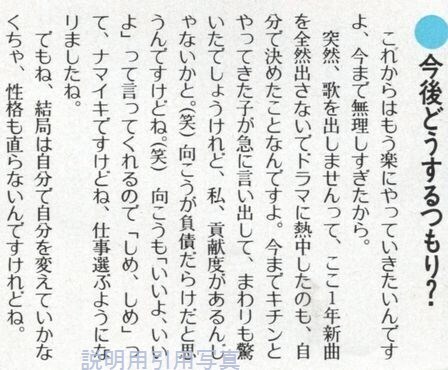 今後どうするつもり?
これからはもう楽にやっていきたいんです
よ、今まで無理しすぎたから。
突然、歌を出しませんって、ここ1年新曲
を全然出さないでドラマに熱中したのも、自
分で決めたことなんですよ。今までキチンと
やってきた子が急に言い出して、まわりも驚
いたでしょうけれど、私、貢献度があるんじ
ゃないかと。(笑) 向こうが負債だらけだと思
うんですけどね。(笑) 向こうも「いいよ、いい
よ」って言ってくれるので「しめ、しめ」っ
て、ナマイキですけどね、仕事選ぶようにな
りましたね。
でもね、結局は自分で自分を変えていかな
くちゃ、性格も直らないんですけれどね。
説明用引用写真